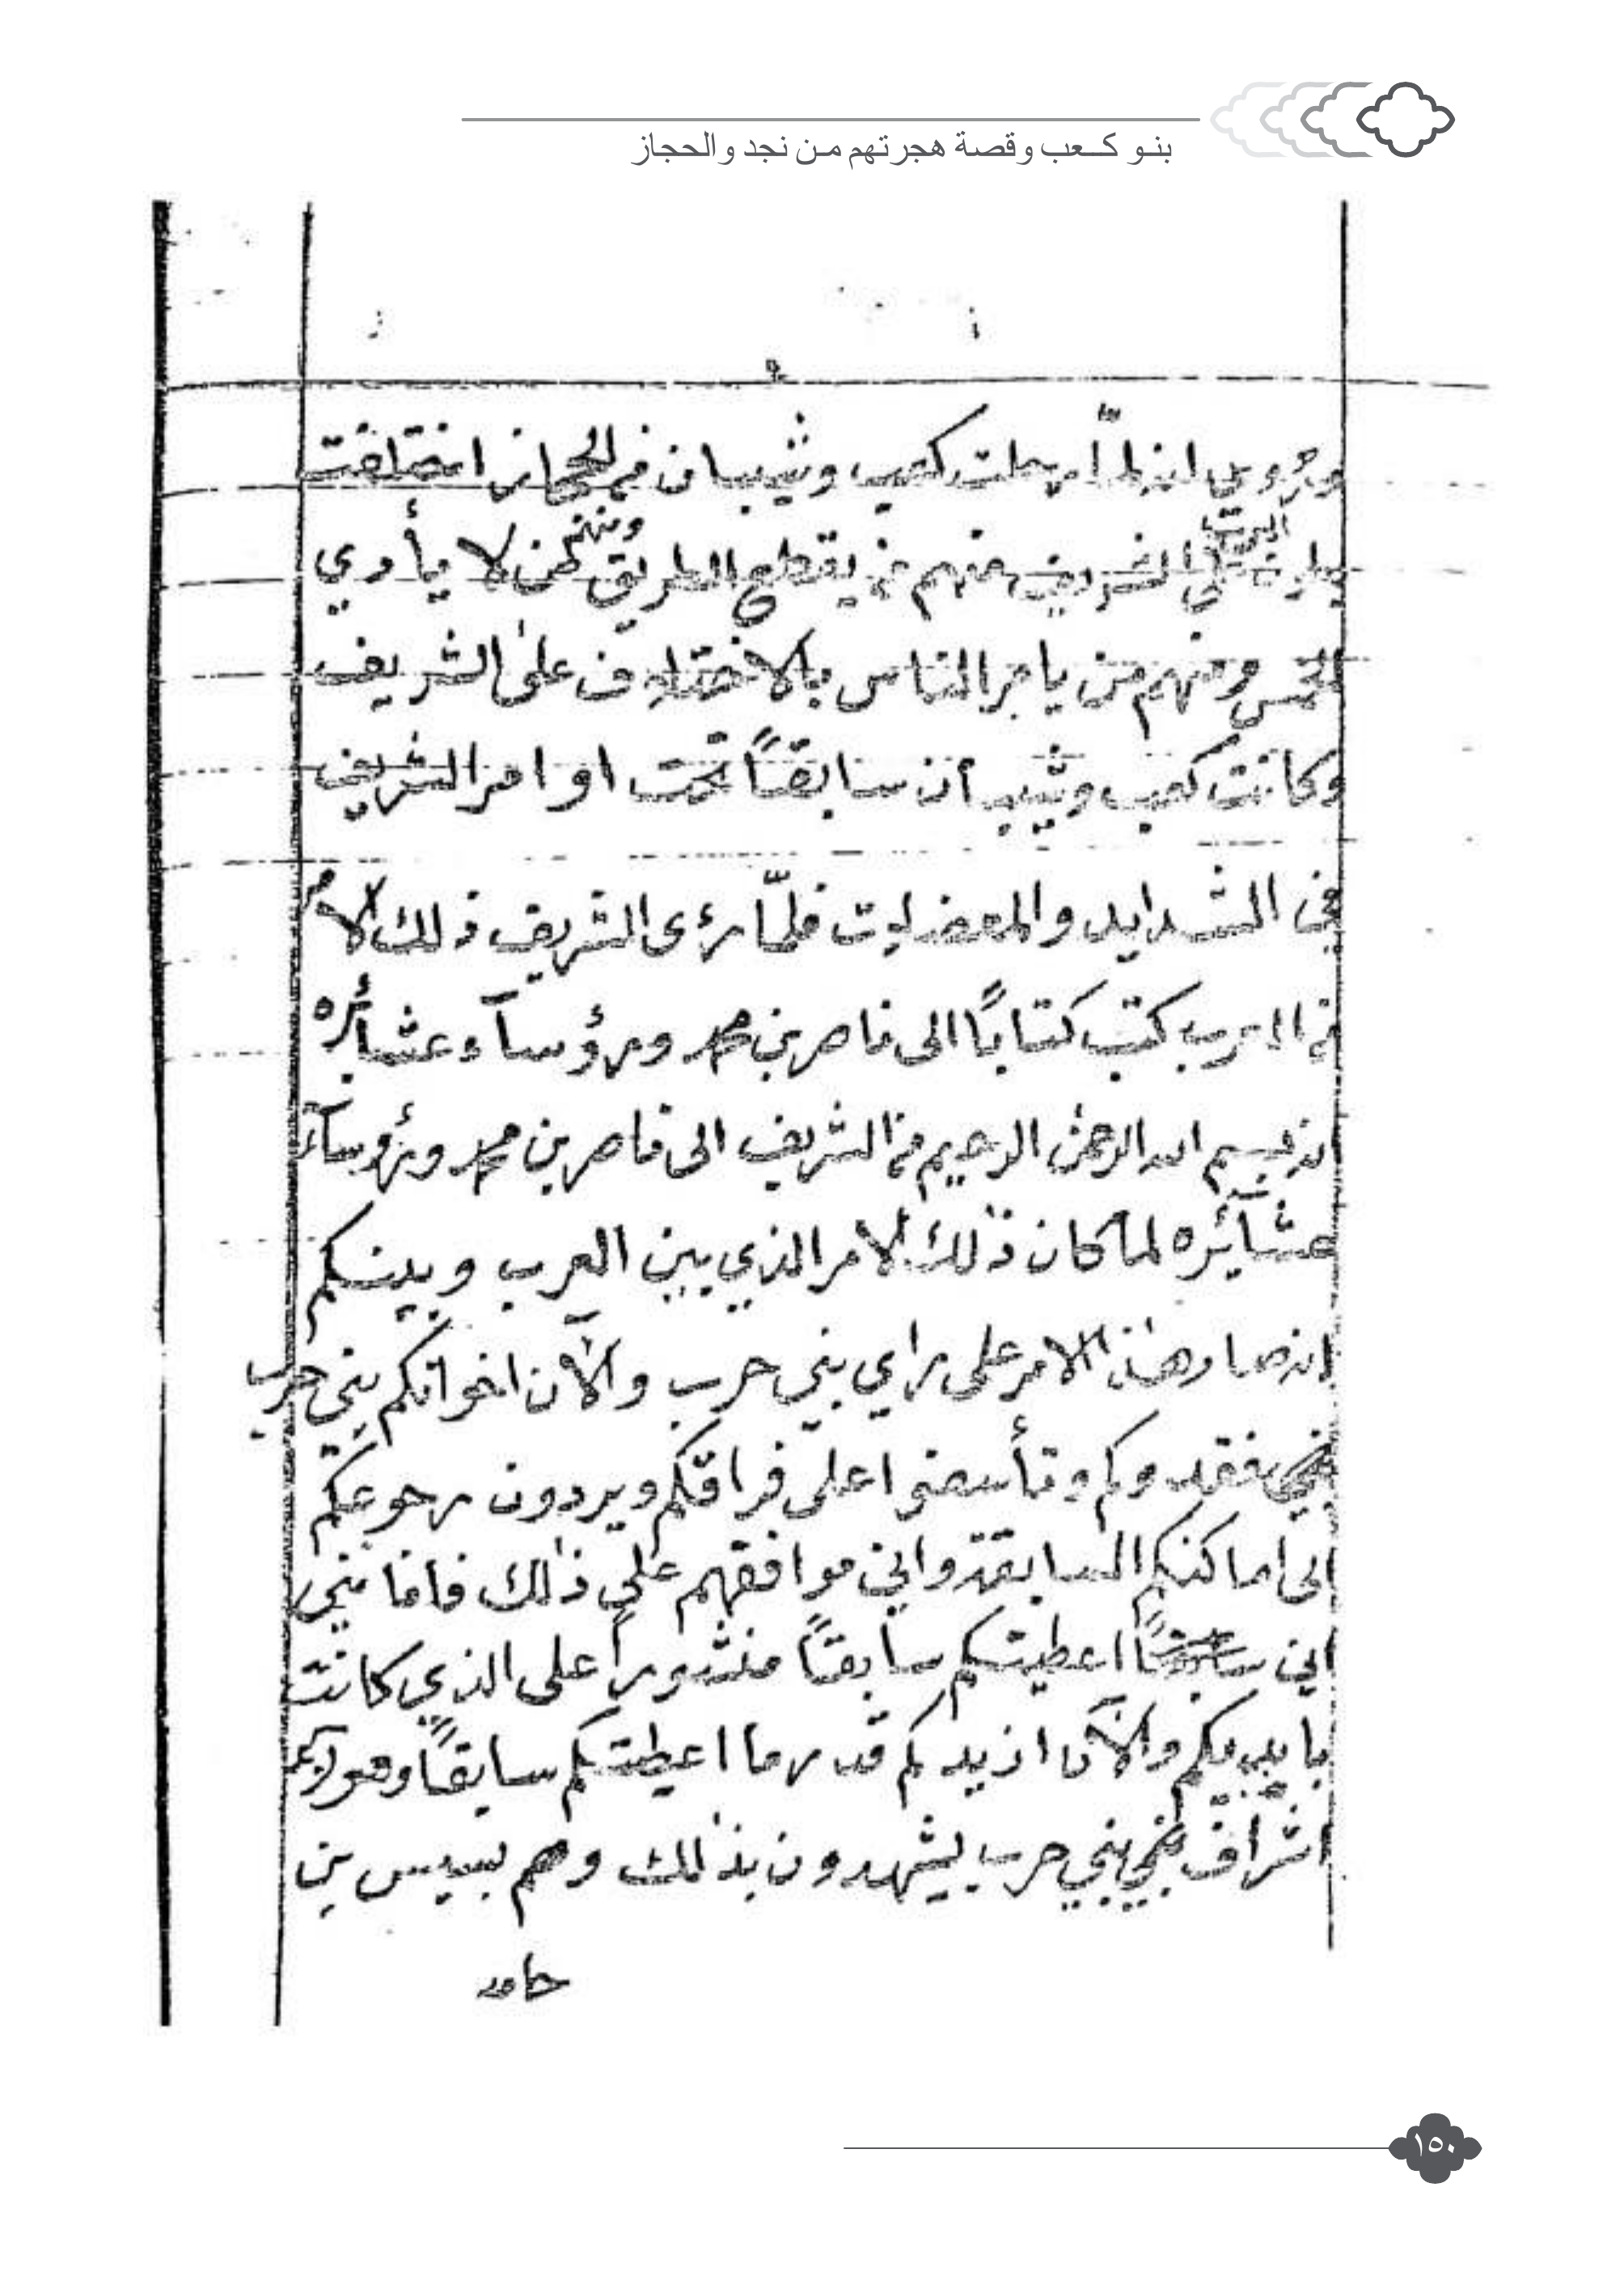 بنو كعب وقصة هجرتهم من نجد والحجاز
٩
وروي انه لمّا رحلت كعب وشيبان من الحجاز اختلفت
العرب
على الشريف منهم من يقطع الطريق ومنهم من لا يأدي
الخمس ومنهم من يامر الناس بالاختلاف على الشريف
وكانت كعب وشيبان سابقاً تحت اوامر الشريف
في الشدايد والمعضلات فلمّا رئى الشريف ذلك الامر
من العرب كتب كتاباً الى ناصر بن محمد ورؤسآء عشائره
انه بسم الله الرحمن الرحيم من الشريف الى ناصر بن محمد ورؤوسآء
عشآئره لما كان ذلك الامر الذي بين العرب وبينكم
انه صار هذا الامر على راي بني حرب والآن اخوانكم بني حرب
فقدوكم وتأسفوا على فراقكم ويردون رجوعكم
الى اماكنكم السابقة واني موافقهم على ذلك فانا
اني اعطيتكم سابقاً منشوراً على الذي كانت
بايديكم والآن ازيدكم قدر ما اعطيتكم سابقاً وهولاء
اشراف بني حرب يشهدون بذلك وهم بن
حامد
١٥٠